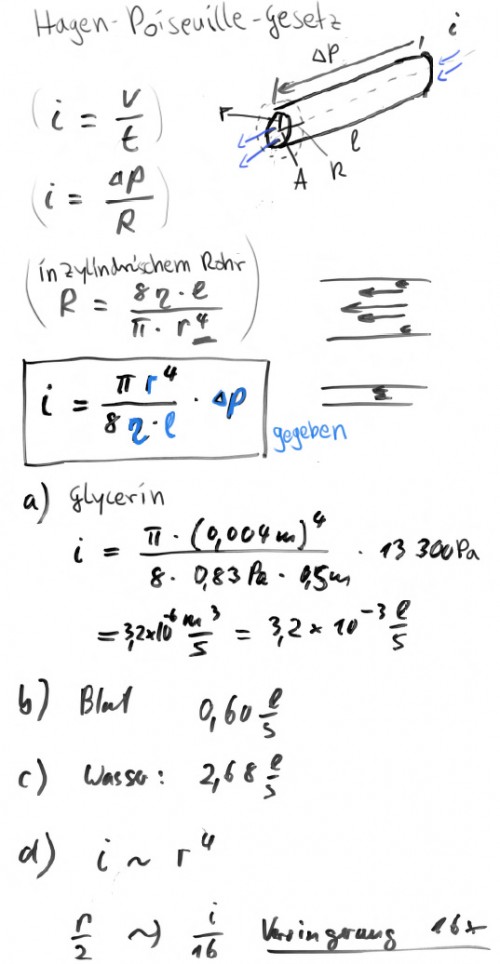 Hagen-Poiseuille-Gesetz
ΔP
i
(i = V/t)
r
l
A
R
(i = ΔP/R)
(in zylindrischem Rohr
R = 8η·l / π·r⁴)
i = πr⁴ / 8η·l · ΔP
gegeben
a) Glycerin
i = π·(0,004m)⁴ / 8·0,83Pa·0,5m · 13 300Pa
= 3,2×10⁻⁶ m³/s = 3,2×10⁻³ l/s
b) Blut 0,60 l/s
c) Wasser: 2,68 l/s
d) i ~ r⁴
r/2 ~) i/16 Verringerung 16x